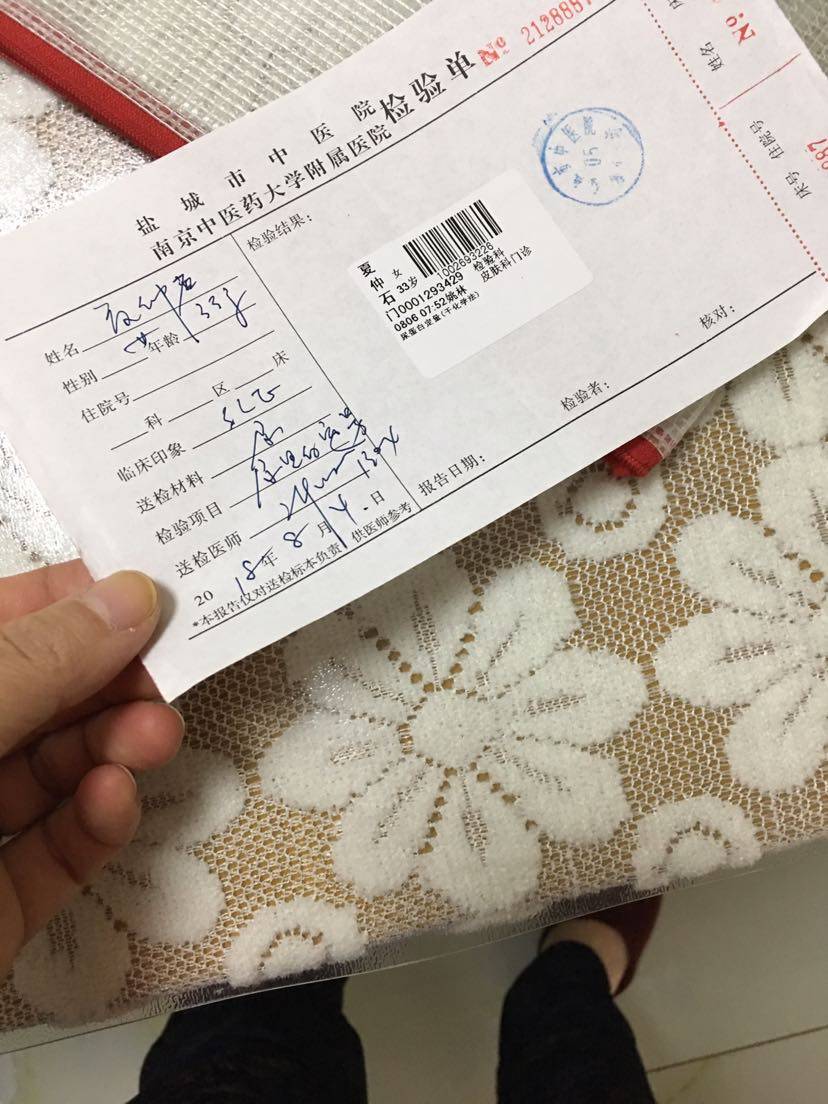 盐城市中医院
南京中医药大学附属医院
检验单
№ 2128887
姓名
性别 女 年龄 33岁
住院号
科 区 床
临床印象 SLE
送检材料 尿
检验项目
送检医师
2018年8月4日
*本报告仅对送检标本负责 供医师参考
检验结果:
夏仲石 女 33岁
1002693226
门0001293429 检验科
0806 07:52姚林 皮肤科门诊
尿蛋白定量(干化学法)
报告日期:
检验者:
核对:
姓名
№
床号 住院号